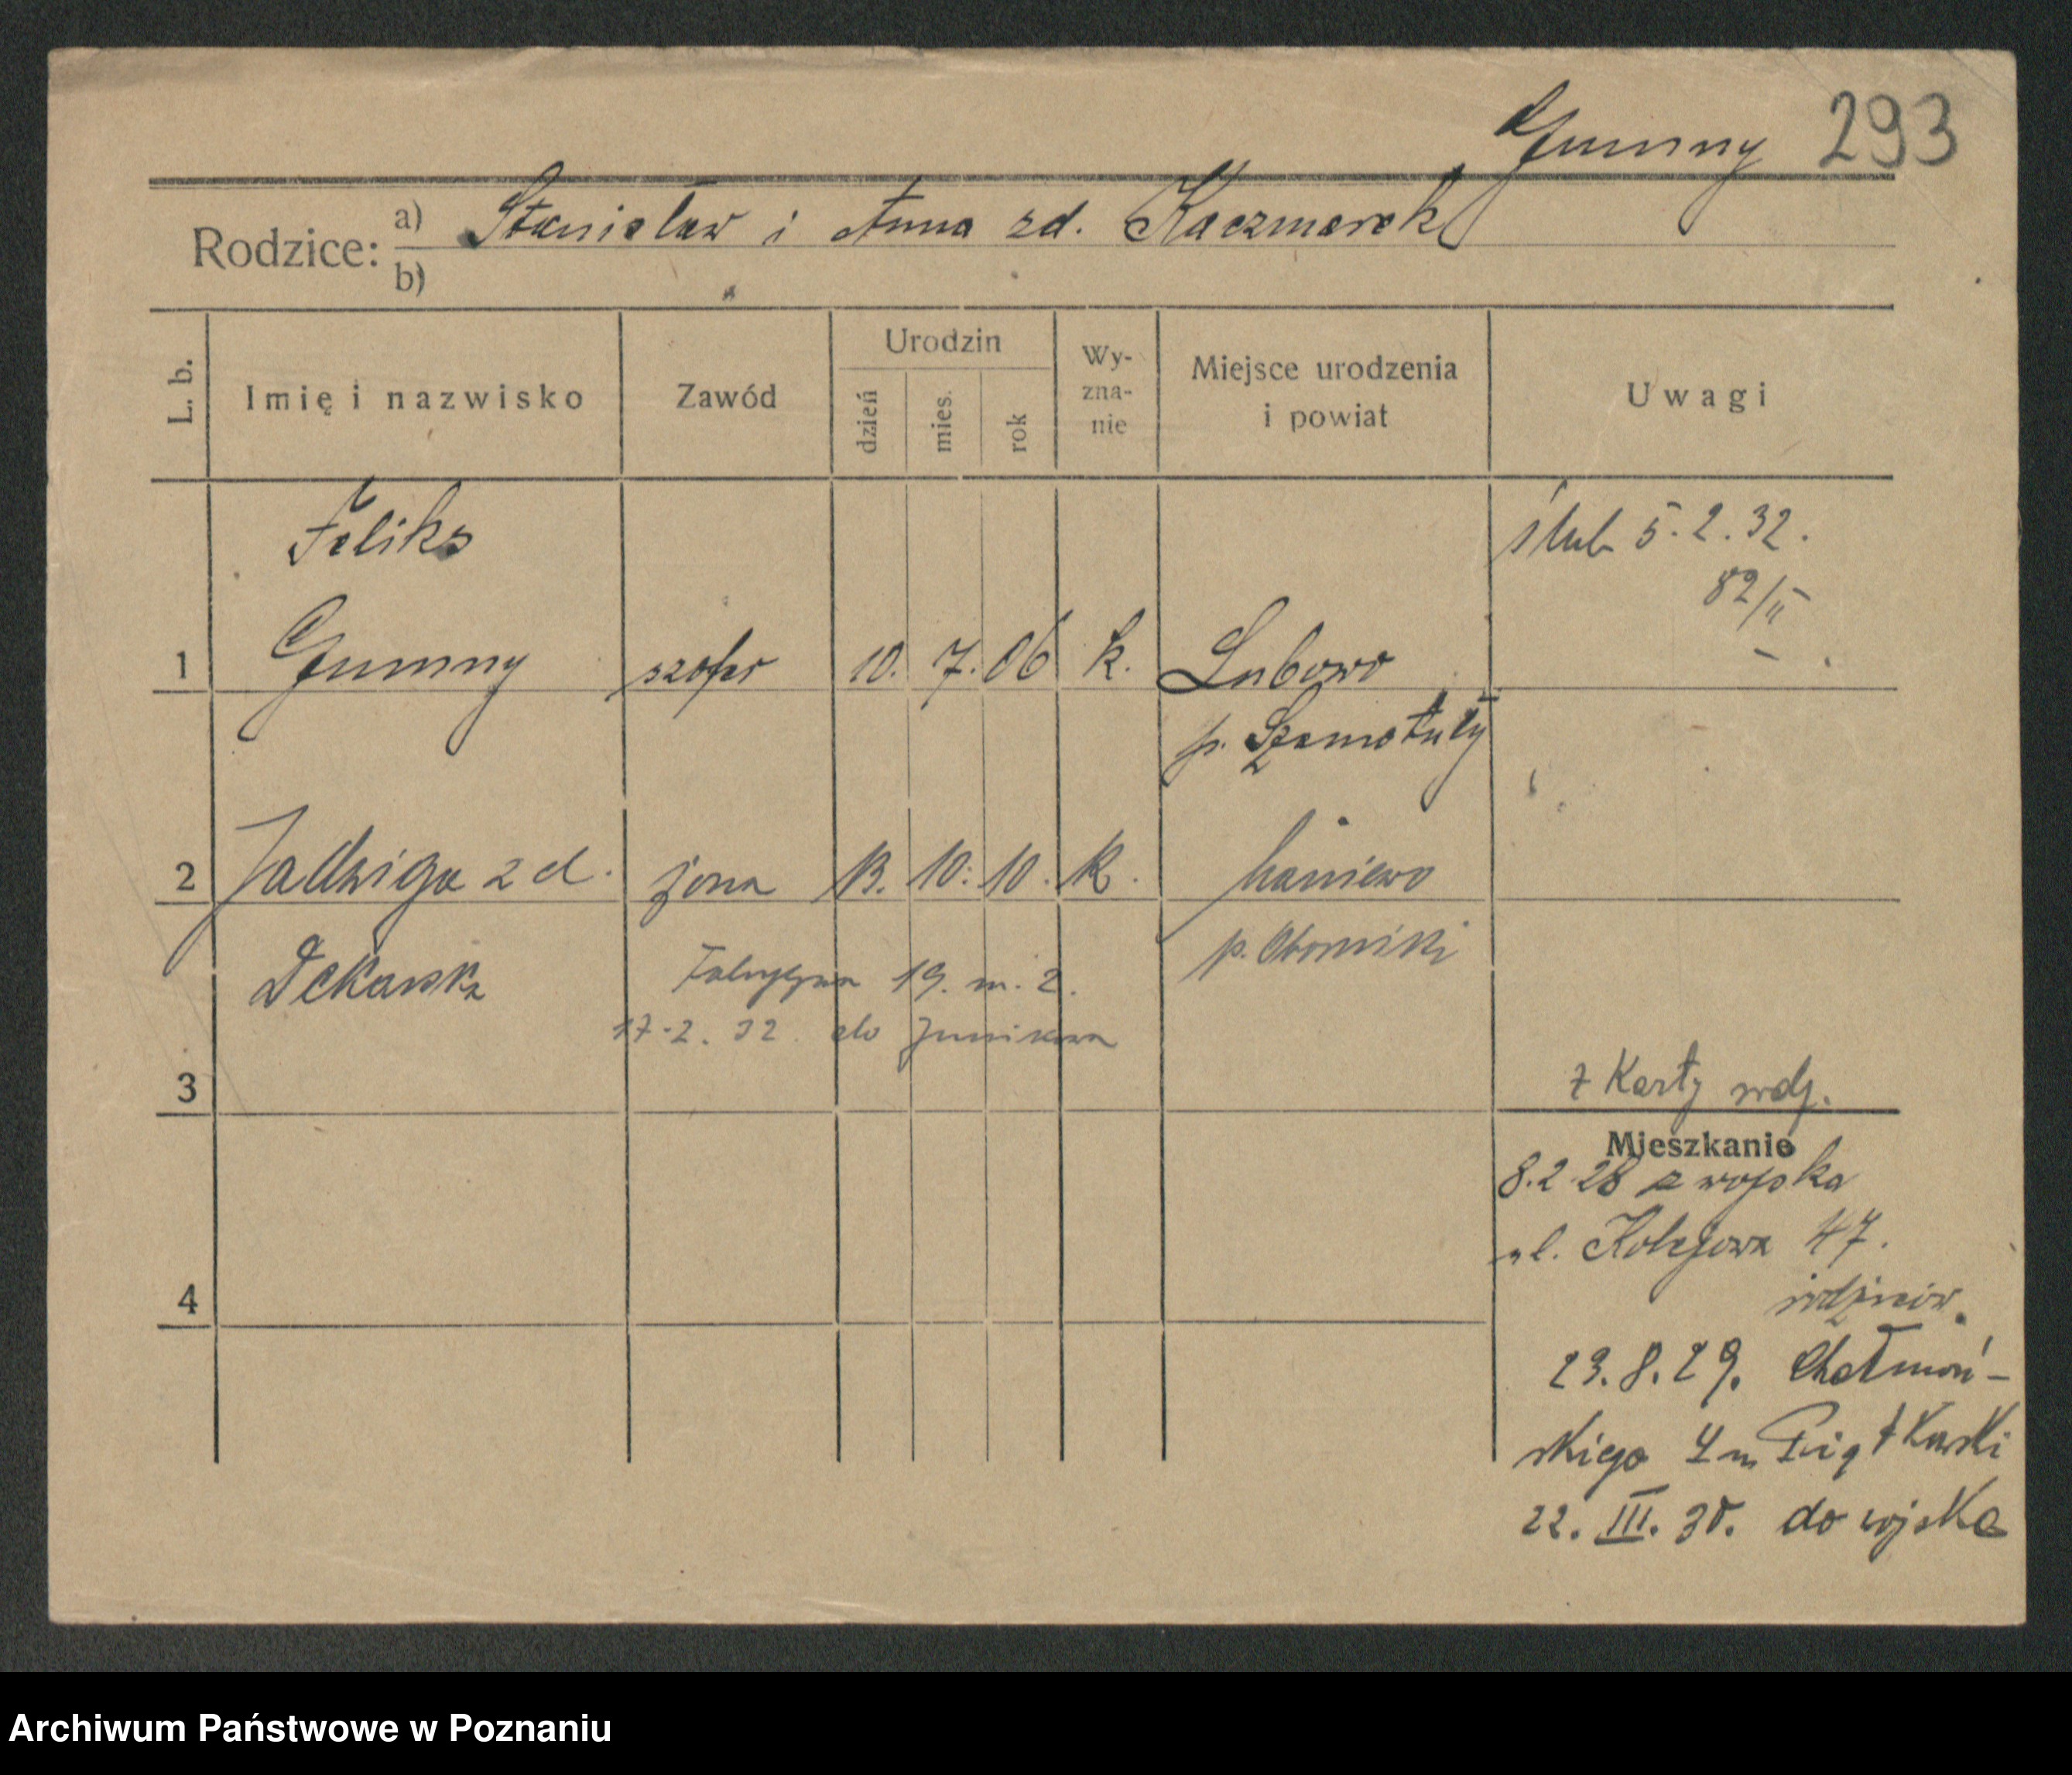 Gumny 293
Rodzice: a) Stanisław i Anna zd. Kaczmarek
b)
L. b. Imię i nazwisko Zawód Urodzin dzień mies. rok Wy-zna-nie Miejsce urodzenia i powiat Uwagi
Feliks
ślub 5.2.32.
82/II
1 Gumny szofer 10. 7. 06 k. Lubowo
p. Szamotuły
2 Jadwiga zd. żona 13. 10. 10. k. Naniewo
Dekarska p. Oborniki
Fabryczna 19. m. 2.
17.2.32. do Junikowa
3
z Karty rodz.
Mieszkanie
8.2.28 z wojska
ul. Kolejowa 47.
4
23.8.29. Chełmoń-
skiego 4 m Piątkowski
22. III. 30. do wojska
Archiwum Państwowe w Poznaniu